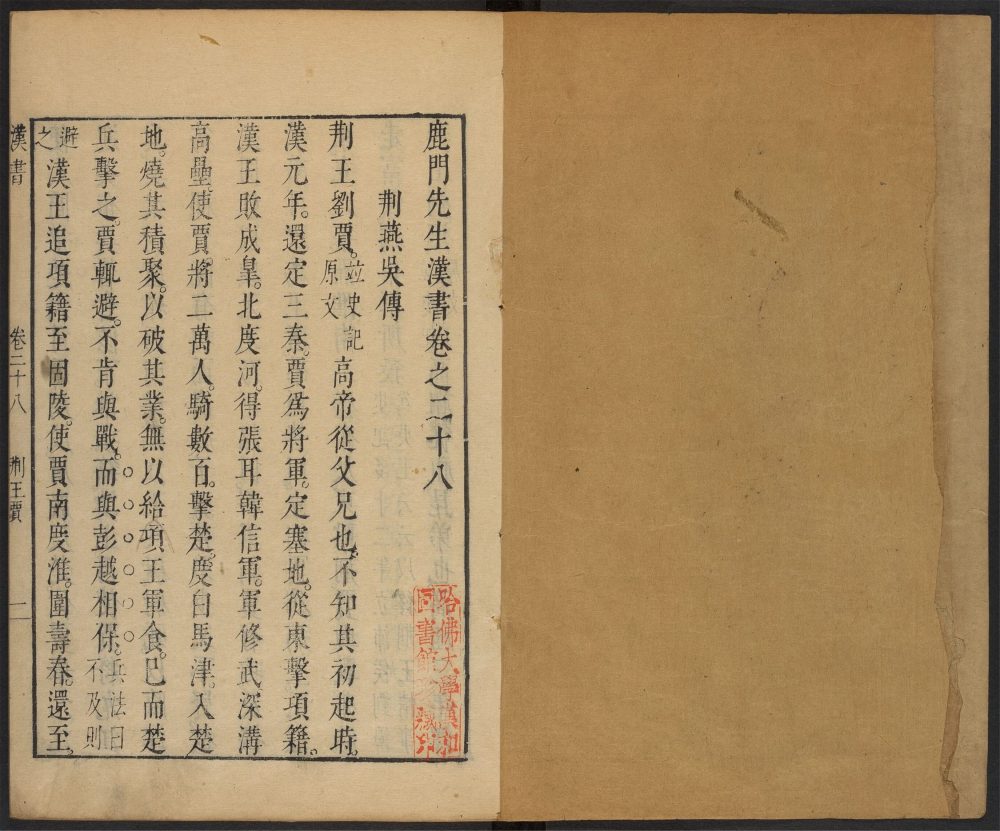 鹿門先生漢書卷之二十八
荆燕吳傳
荆王劉賈。並史記原文高帝從父兄也。不知其初起時。
漢元年。還定三秦。賈爲將軍。定塞地。從東擊項籍。
漢王敗成臯。北度河。得張耳韓信軍。軍修武深溝
高壘。使賈將二萬人。騎數百。擊楚。度白馬津。入楚
地。燒其積聚。以破其業。無以給項王軍食。已而楚
兵擊之。賈輒避。不肯與戰。而與彭越相保。兵法曰不及則
避之漢王追項籍至固陵。使賈南度淮。圍壽春。還至。
漢書 卷二十八 荆王賈 一
哈佛大學漢和
圖書館珍藏印